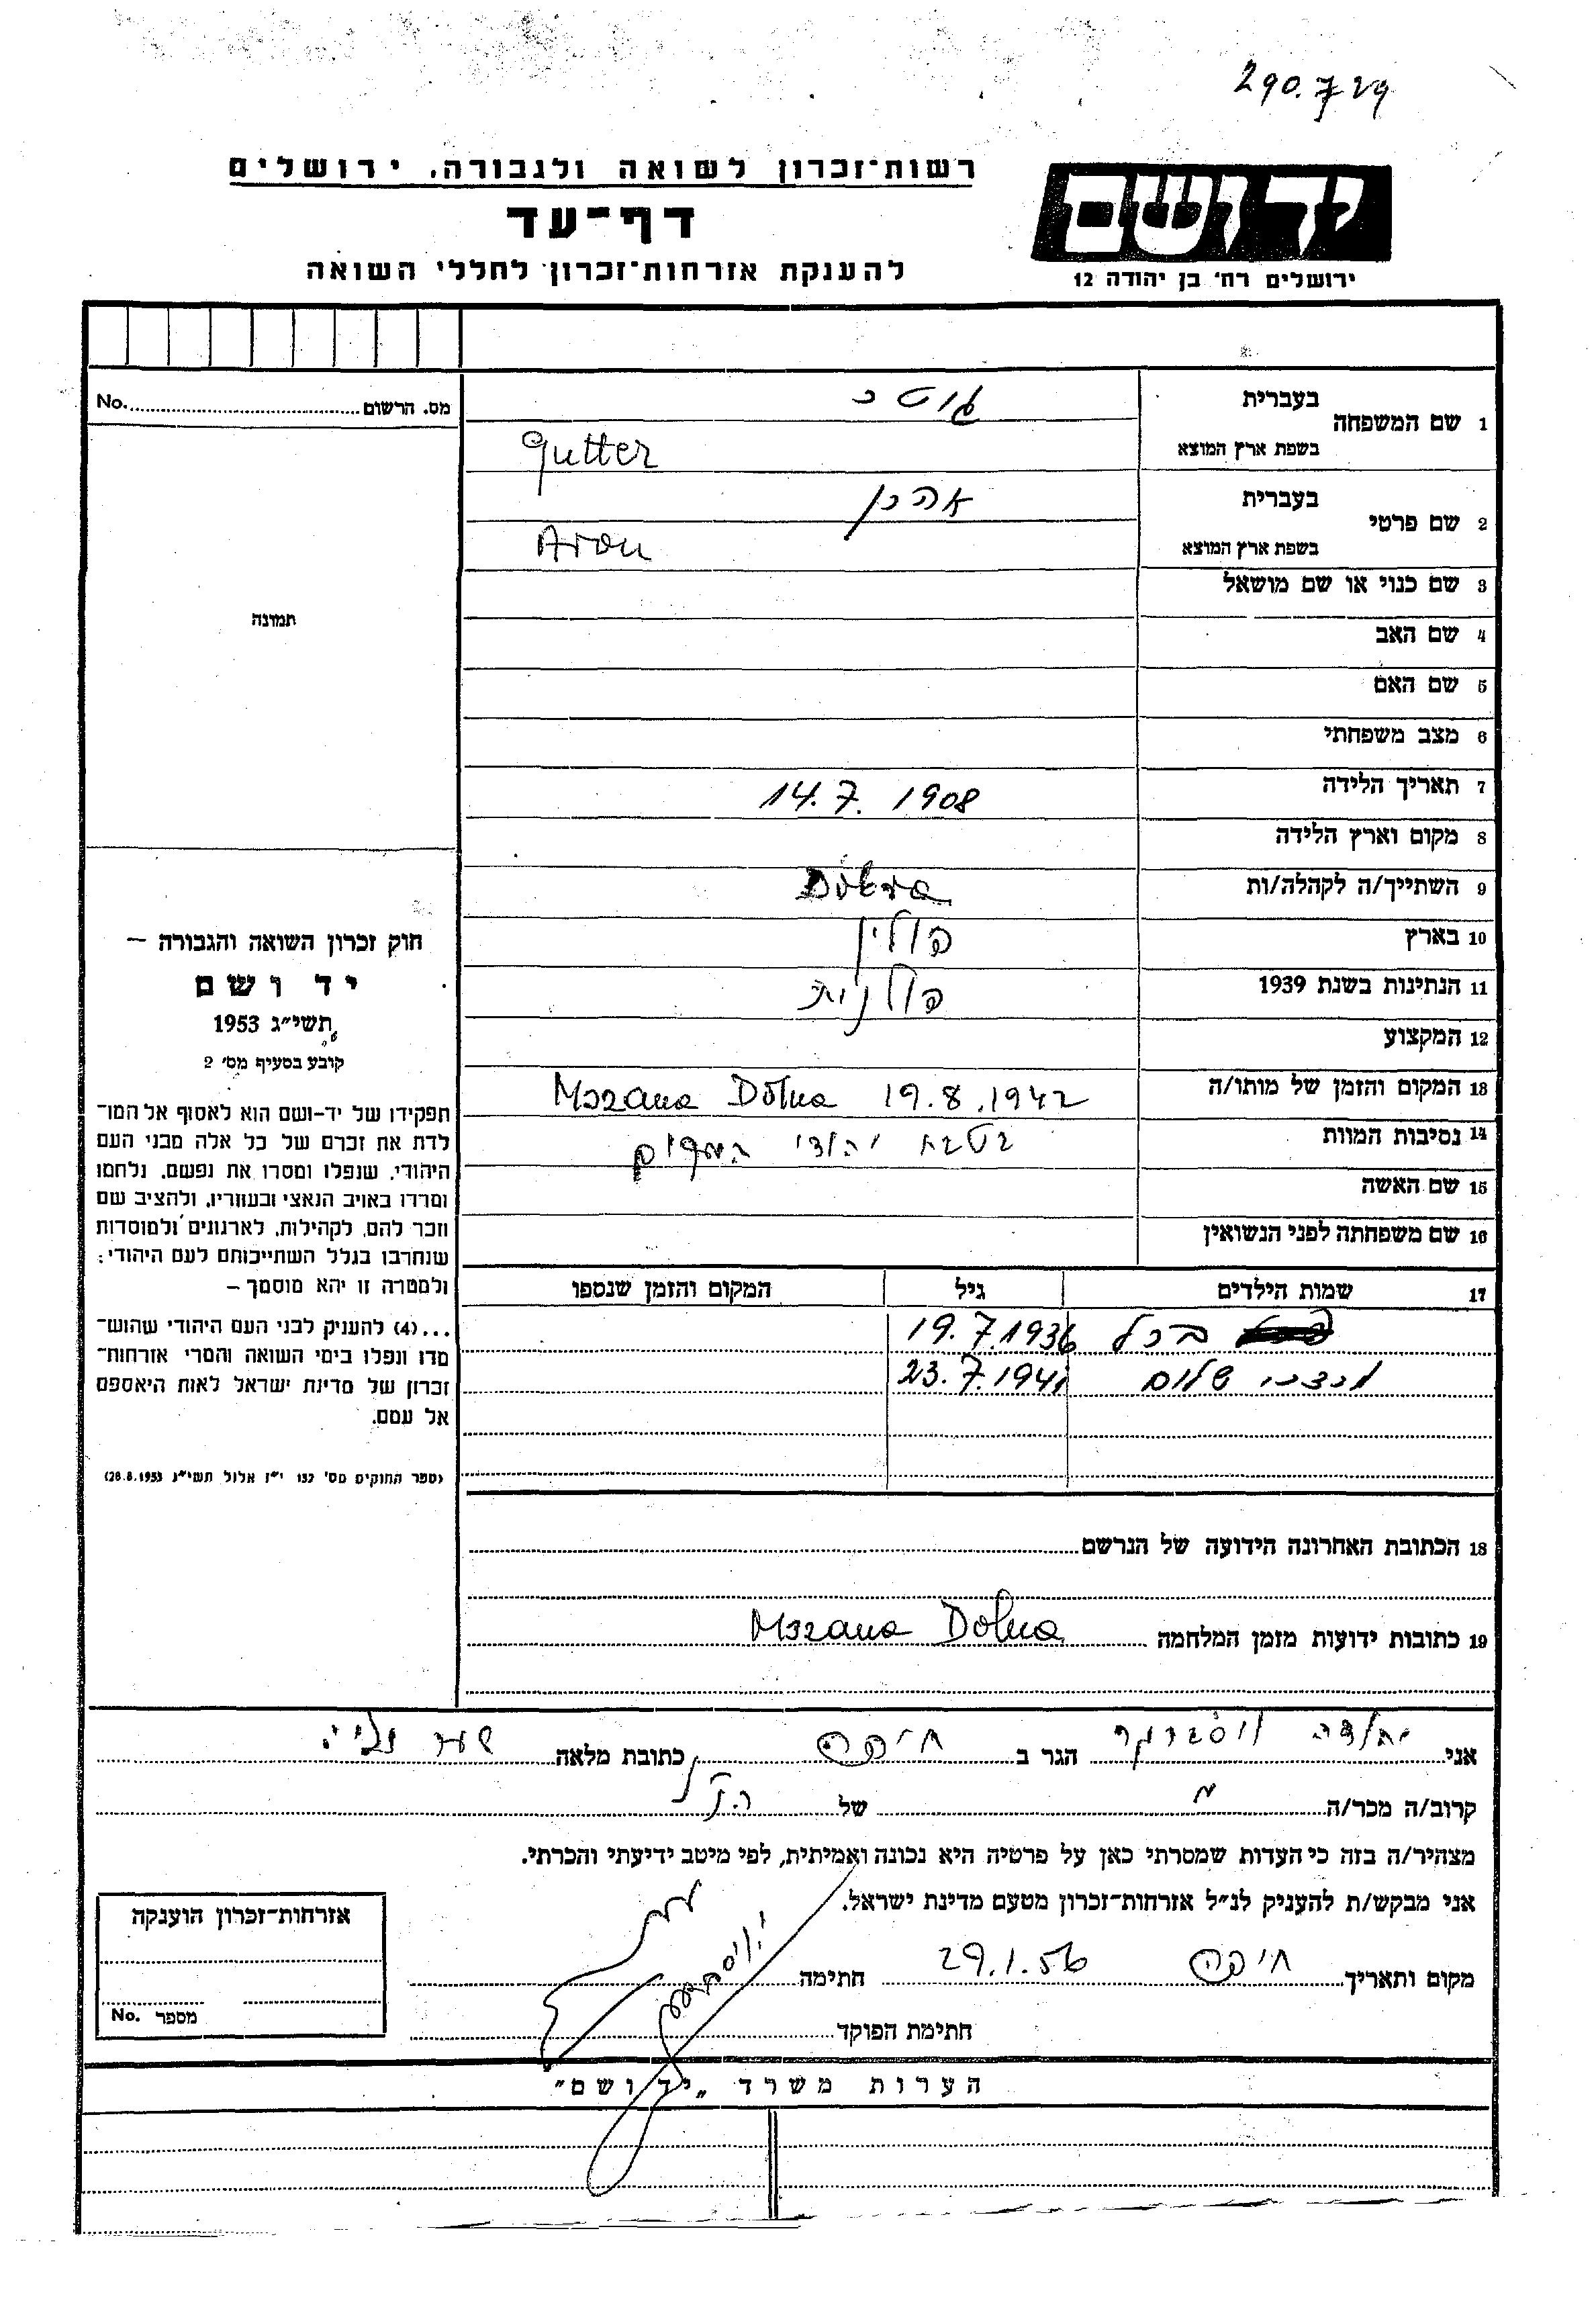 290.729
רשות־זכרון לשואה ולגבורה, ירושלים
דף־עד
להענקת אזרחות־זכרון לחללי השואה
יד ושם
ירושלים רח' בן יהודה 12
מס. הרשום No.
תמונה
1 שם המשפחה בעברית גוטר
בשפת ארץ המוצא Gutter
2 שם פרטי בעברית אהרן
בשפת ארץ המוצא Aron
3 שם כנוי או שם מושאל
4 שם האב
5 שם האם
6 מצב משפחתי
7 תאריך הלידה 14.7.1908
8 מקום וארץ הלידה
9 השתייך/ה לקהלה/ות Dobra
10 בארץ פולין
11 הנתינות בשנת 1939 פולנית
12 המקצוע
13 המקום והזמן של מותו/ה Mszana Dolna 19.8.1942
14 נסיבות המוות בטבח יהודי המקום
15 שם האשה
16 שם משפחתה לפני הנשואין
17 שמות הילדים גיל המקום והזמן שנספו
רכל 19.7.1936
שלום 23.7.1941
18 הכתובת האחרונה הידועה של הנרשם
19 כתובות ידועות מזמן המלחמה Mszana Dolna
חוק זכרון השואה והגבורה –
יד ושם
תשי״ג 1953
קובע בסעיף מס׳ 2
תפקידו של יד-ושם הוא לאסוף אל המו־
לדת את זכרם של כל אלה מבני העם
היהודי, שנפלו ומסרו את נפשם, נלחמו
ומרדו באויב הנאצי ובעוזריו, ולהציב שם
וזכר להם, לקהילות, לארגונים ולמוסדות
שנחרבו בגלל השתייכותם לעם היהודי;
ולמטרה זו יהא מוסמך –
...(4) להעניק לבני העם היהודי שהוש־
מדו ונפלו בימי השואה והמרי אזרחות־
זכרון של מדינת ישראל לאות היאספם
אל עמם.
(ספר החוקים מס׳ 132 י״ז אלול תשי״ג 28.8.1953)
אני יהודה הגר ב חיפה כתובת מלאה שער עליה
קרוב/ה מכר/ה של הנ"ל
מצהיר/ה בזה כי העדות שמסרתי כאן על פרטיה היא נכונה ואמיתית, לפי מיטב ידיעתי והכרתי.
אני מבקש/ת להעניק לנ״ל אזרחות־זכרון מטעם מדינת ישראל.
מקום ותאריך חיפה 29.1.56 חתימה
חתימת הפוקד
אזרחות־זכרון הוענקה
מספר No.
הערות משרד „יד ושם״